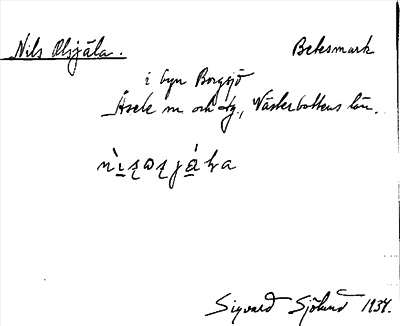 Nils Olsjäla. Betesmark
i byn Borgsjö
Åsele sn. och tg., Västerbottens län.
Sigvard Sjölund 1934.